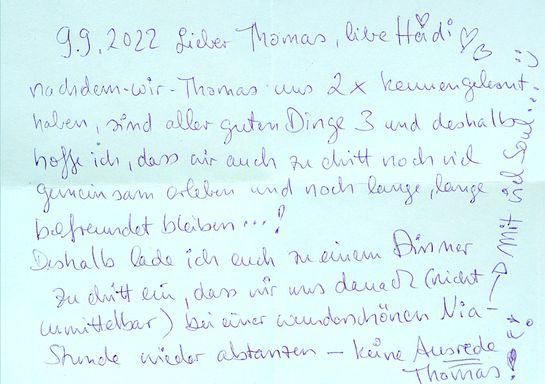 9.9.2022 Lieber Thomas, liebe Heidi
nachdem-wir-Thomas uns 2x kennengelernt
haben, sind aller guten Dinge 3 und deshalb
hoffe ich, dass wir auch zu dritt noch viel
gemeinsam erleben und noch lange, lange
befreundet bleiben...!
Deshalb lade ich euch zu einem Dinner
zu dritt ein, dass wir uns danach (nicht
unmittelbar) bei einer wunderschönen Nia-
Stunde wieder abtanzen – keine Ausrede
Thomas!
Mit viel Soul!